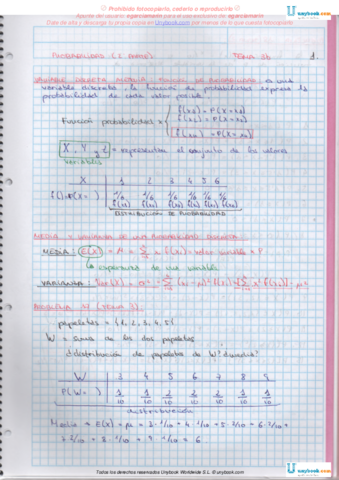 Prohibido fotocopiarlo, cederlo o reproducirlo
Apunte del usuario egarciamarin para el uso exclusivo de: egarciamarin
Date de alta y descarga tu propia copia en Unybook.com por menos de lo que cuesta fotocopiarlo
unybook.com
PROBABILIDAD (2 PARTE) TEMA 3b 1.
VARIABLE DISCRETA FUNCIÓN DE PROBABILIDAD es una
variable discreta, la función de probabilidad expresa la
probabilidad de cada valor posible.
Función probabilidad x
f(x1) = P(X=x1)
f(x2) = P(X=x2)
X, Y, Z = representan el conjunto de los valores
variables
X 1 2 3 4 5 6
f()=P(X= ) 1/6 1/6 1/6 1/6 1/6 1/6
f(x1) f(x2) f(x3) f(x4) f(x5) f(x6)
DISTRIBUCIÓN DE PROBABILIDAD
MEDIA Y VARIANZA DE UNA PROBABILIDAD DISCRETA
MEDIA: E(X) = μ = valor variable x P
la esperanza de una variable
VARIANZA: Var(X) = σ²
papeletas = {1, 2, 3, 4, 5}
W = suma de las dos papeletas
¿distribución de papeletas de W?
W 3 4 5 6 7 8 9
P(W= ) 1/10 1/10 2/10 2/10 2/10 1/10 1/10
distribución
Media = E(X) = μ = 3·1/10 + 4·1/10 + 5·2/10 + 6·2/10 +
7·2/10 + 8·1/10 + 9·1/10 = 6
Todos los derechos reservados Unybook Worldwide S.L. © unybook.com
unybook.com